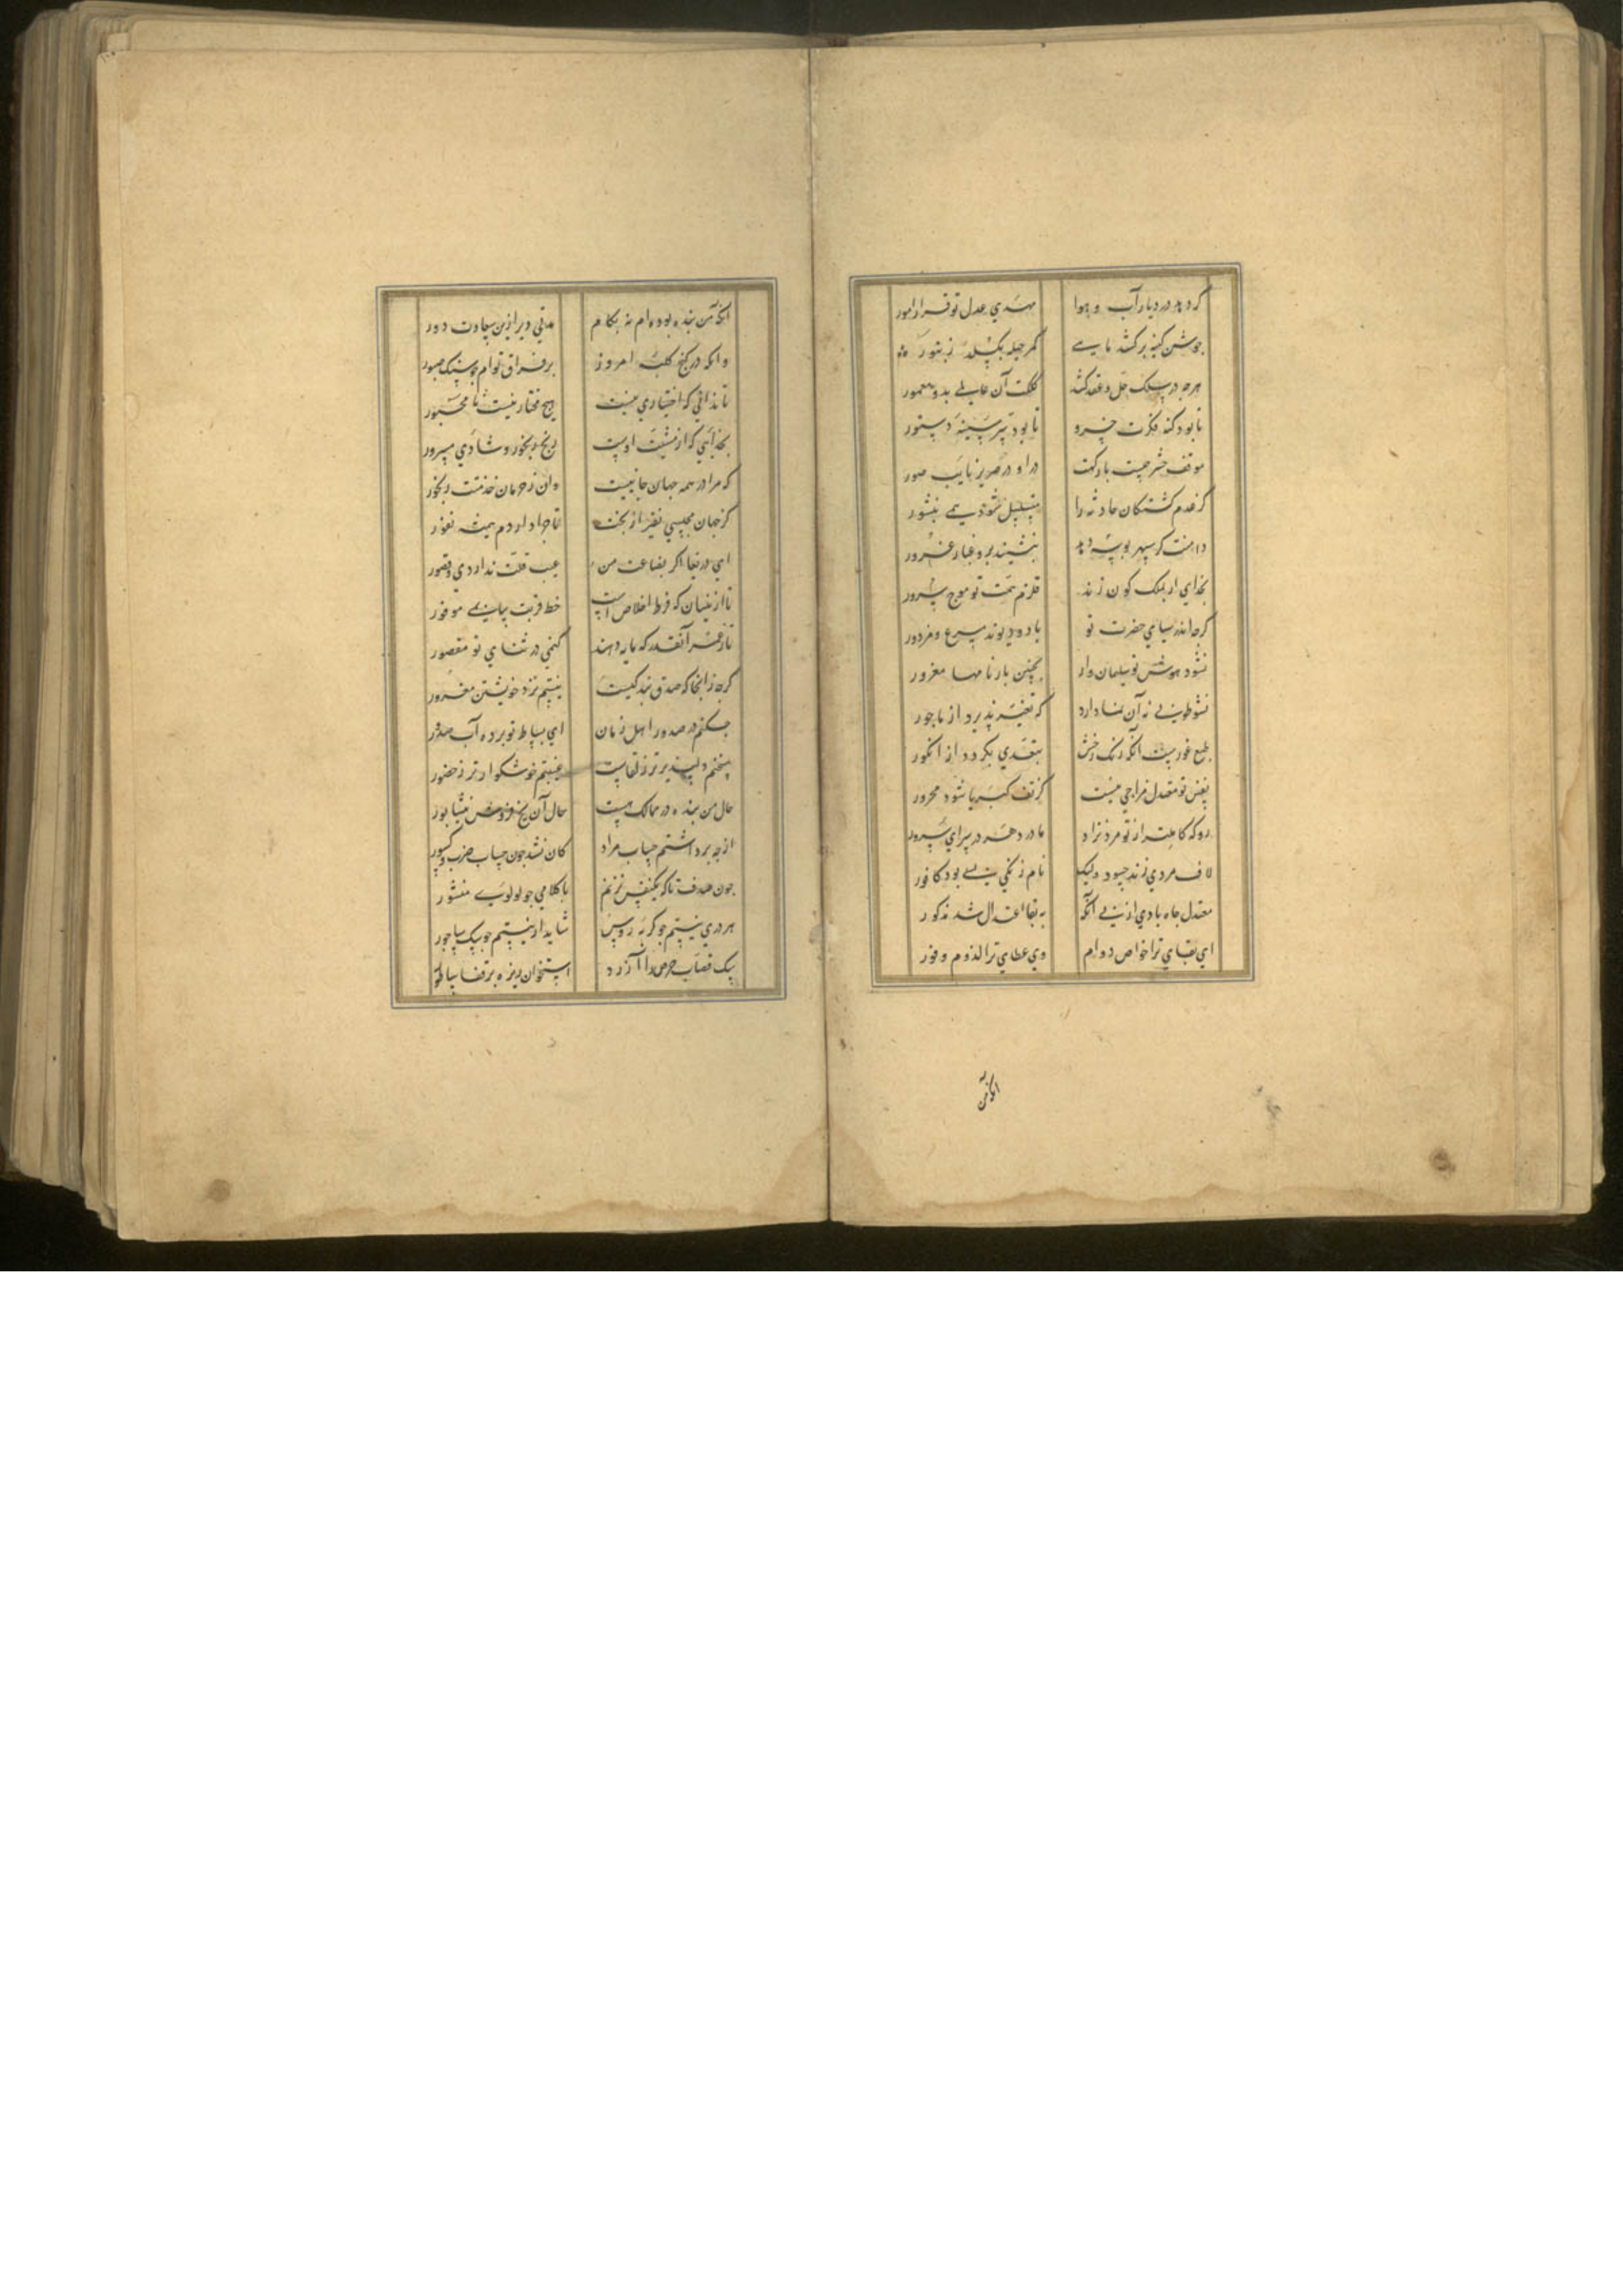 گر دهد در دیار آب و هوا مهدی عدل تو قرار امور
جوشن کینه برکشد ماهی کمر حیله بگسلد زنبور
هرچه در سلک حل و عقد کشد کلکت آن عالمی بدو معمور
تا بود کنه فکرت خسرو تا بود تیر سینه دستور
موقف حشر چیست بارگهت در او در صریر نایب صور
کز عدم کشتگان حادثه را متسلسل شود همی نشور
دامنت گر سپهر بوسه دهد ننشیند برو غبار غرور
بخدای ار بملک کون زند قلزم همت تو موج سرور
گرچه اندر سبای حضرت تو باد و دیوند مسرع و مزدور
نشود هوش تو سلیمان وار بچنین بارنامها مغرور
نشوطینی نه آن نما دارد که تغیر پذیرد از ماجور
طبع غوریست آنکه رنگ رخش بتعدی بگردد از انگور
نفس تو معتدل مزاجی نیست کز تف کبریا شود محرور
رو که کاملتر از تو مرد نزاد مادر دهر در سرای سرور
لاف مردی زند حسود ولیک نام زنگی بسی بود کافور
معتدل جاه بادی از پی آنکه به بقا اعتدال شد مذکور
ای بقای ترا خواص دوام وی عطای ترا لزوم وفور
آنکه من
آنکه من بنده بوده ام نه بکام مدتی دیر ازین سعادت دور
وانکه در کنج کلبه امروز بر فراق توام چو سنگ صبور
تا ندانی که اختیاری نیست هیچ مختار نیست نا مجبور
بخدایی که از مشیت اوست رنج رنجور و شادی مسرور
که مرا در همه جهان جانیست وان ز حرمان خدمتت رنجور
کز جهان مجلسی نفیر از بخت تا چرا دارد م همیشه نفور
ای دریغا اگر بضاعت من عیب قلت نداردی و قصور
تا ازینسان که فرط اخلاص است خط قربت بیابمی موفور
تاز عمر آنقدر که مایه دهند کنمی در ثنای تو مقصور
گرچه زانجا که صدق بندگیست نیستم نزد خویشتن معذور
چکنم در صدور اهل زمان ای بساط تو برده آب صدور
سخنم دلپذیرتر ز لقاست غیبتم خوشگوارتر ز حضور
حال من بنده در ممالک هست حال آن یخ فروش نیشابور
از چه برداشتم حساب مراد کان نشد چون حساب ضرب و کسور
چون صدف تا که یکنفس نزنم با کلامی چو لولوی منثور
هر دری نیستم چو گربه روس شاید ار نیستم چو سگ ساجور
سگ قصاب حرص را آزرد استخوان ریزه بر قفا ساطور